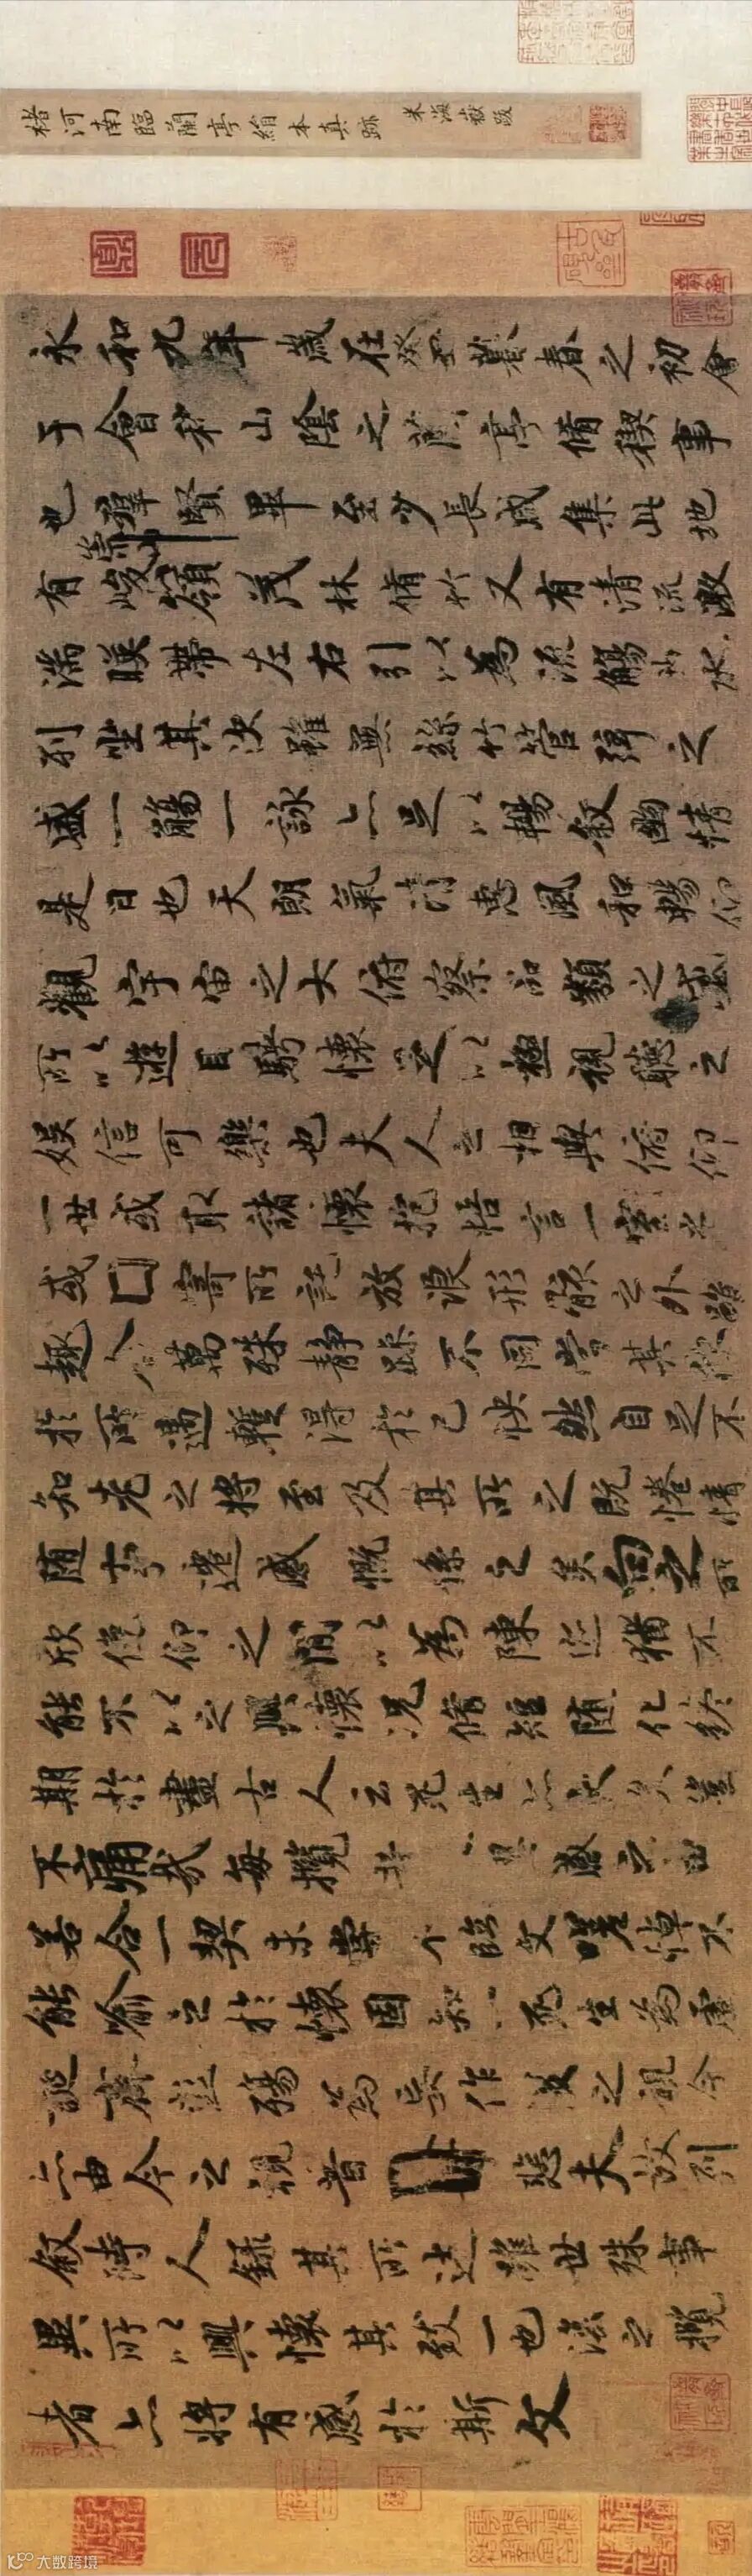 褚河南臨蘭亭絹本真跡 米海嶽跋
永和九年歲在癸丑暮春之初會
于會稽山陰之蘭亭脩稧事
也羣賢畢至少長咸集此地
有崇山峻領茂林脩竹又有清流激
湍暎帶左右引以為流觴曲水
列坐其次雖無絲竹管弦之
盛一觴一詠亦足以暢敘幽情
是日也天朗氣清惠風和暢仰
觀宇宙之大俯察品類之盛
所以遊目騁懷足以極視聽之
娛信可樂也夫人之相與俯仰
一世或取諸懷抱悟言一室之
或因寄所託放浪形骸之外雖
趣舍萬殊靜躁不同當其欣
於所遇暫得於己怏然自足不
知老之將至及其所之既惓情
隨事遷感慨係之矣向之所
欣俛仰之閒以為陳迹猶不
能不以之興懷況脩短隨化終
期於盡古人云死生亦大矣豈
不痛哉每攬昔興感之由
若合一契未嘗不臨文嗟悼不
能喻之於懷固知一死生為虛
誕齊彭殤為妄作後之視今
亦由今之視昔悲夫故列
敘時人錄其所述雖世殊事
異所以興懷其致一也後之攬
者亦將有感於斯文
大数跨境